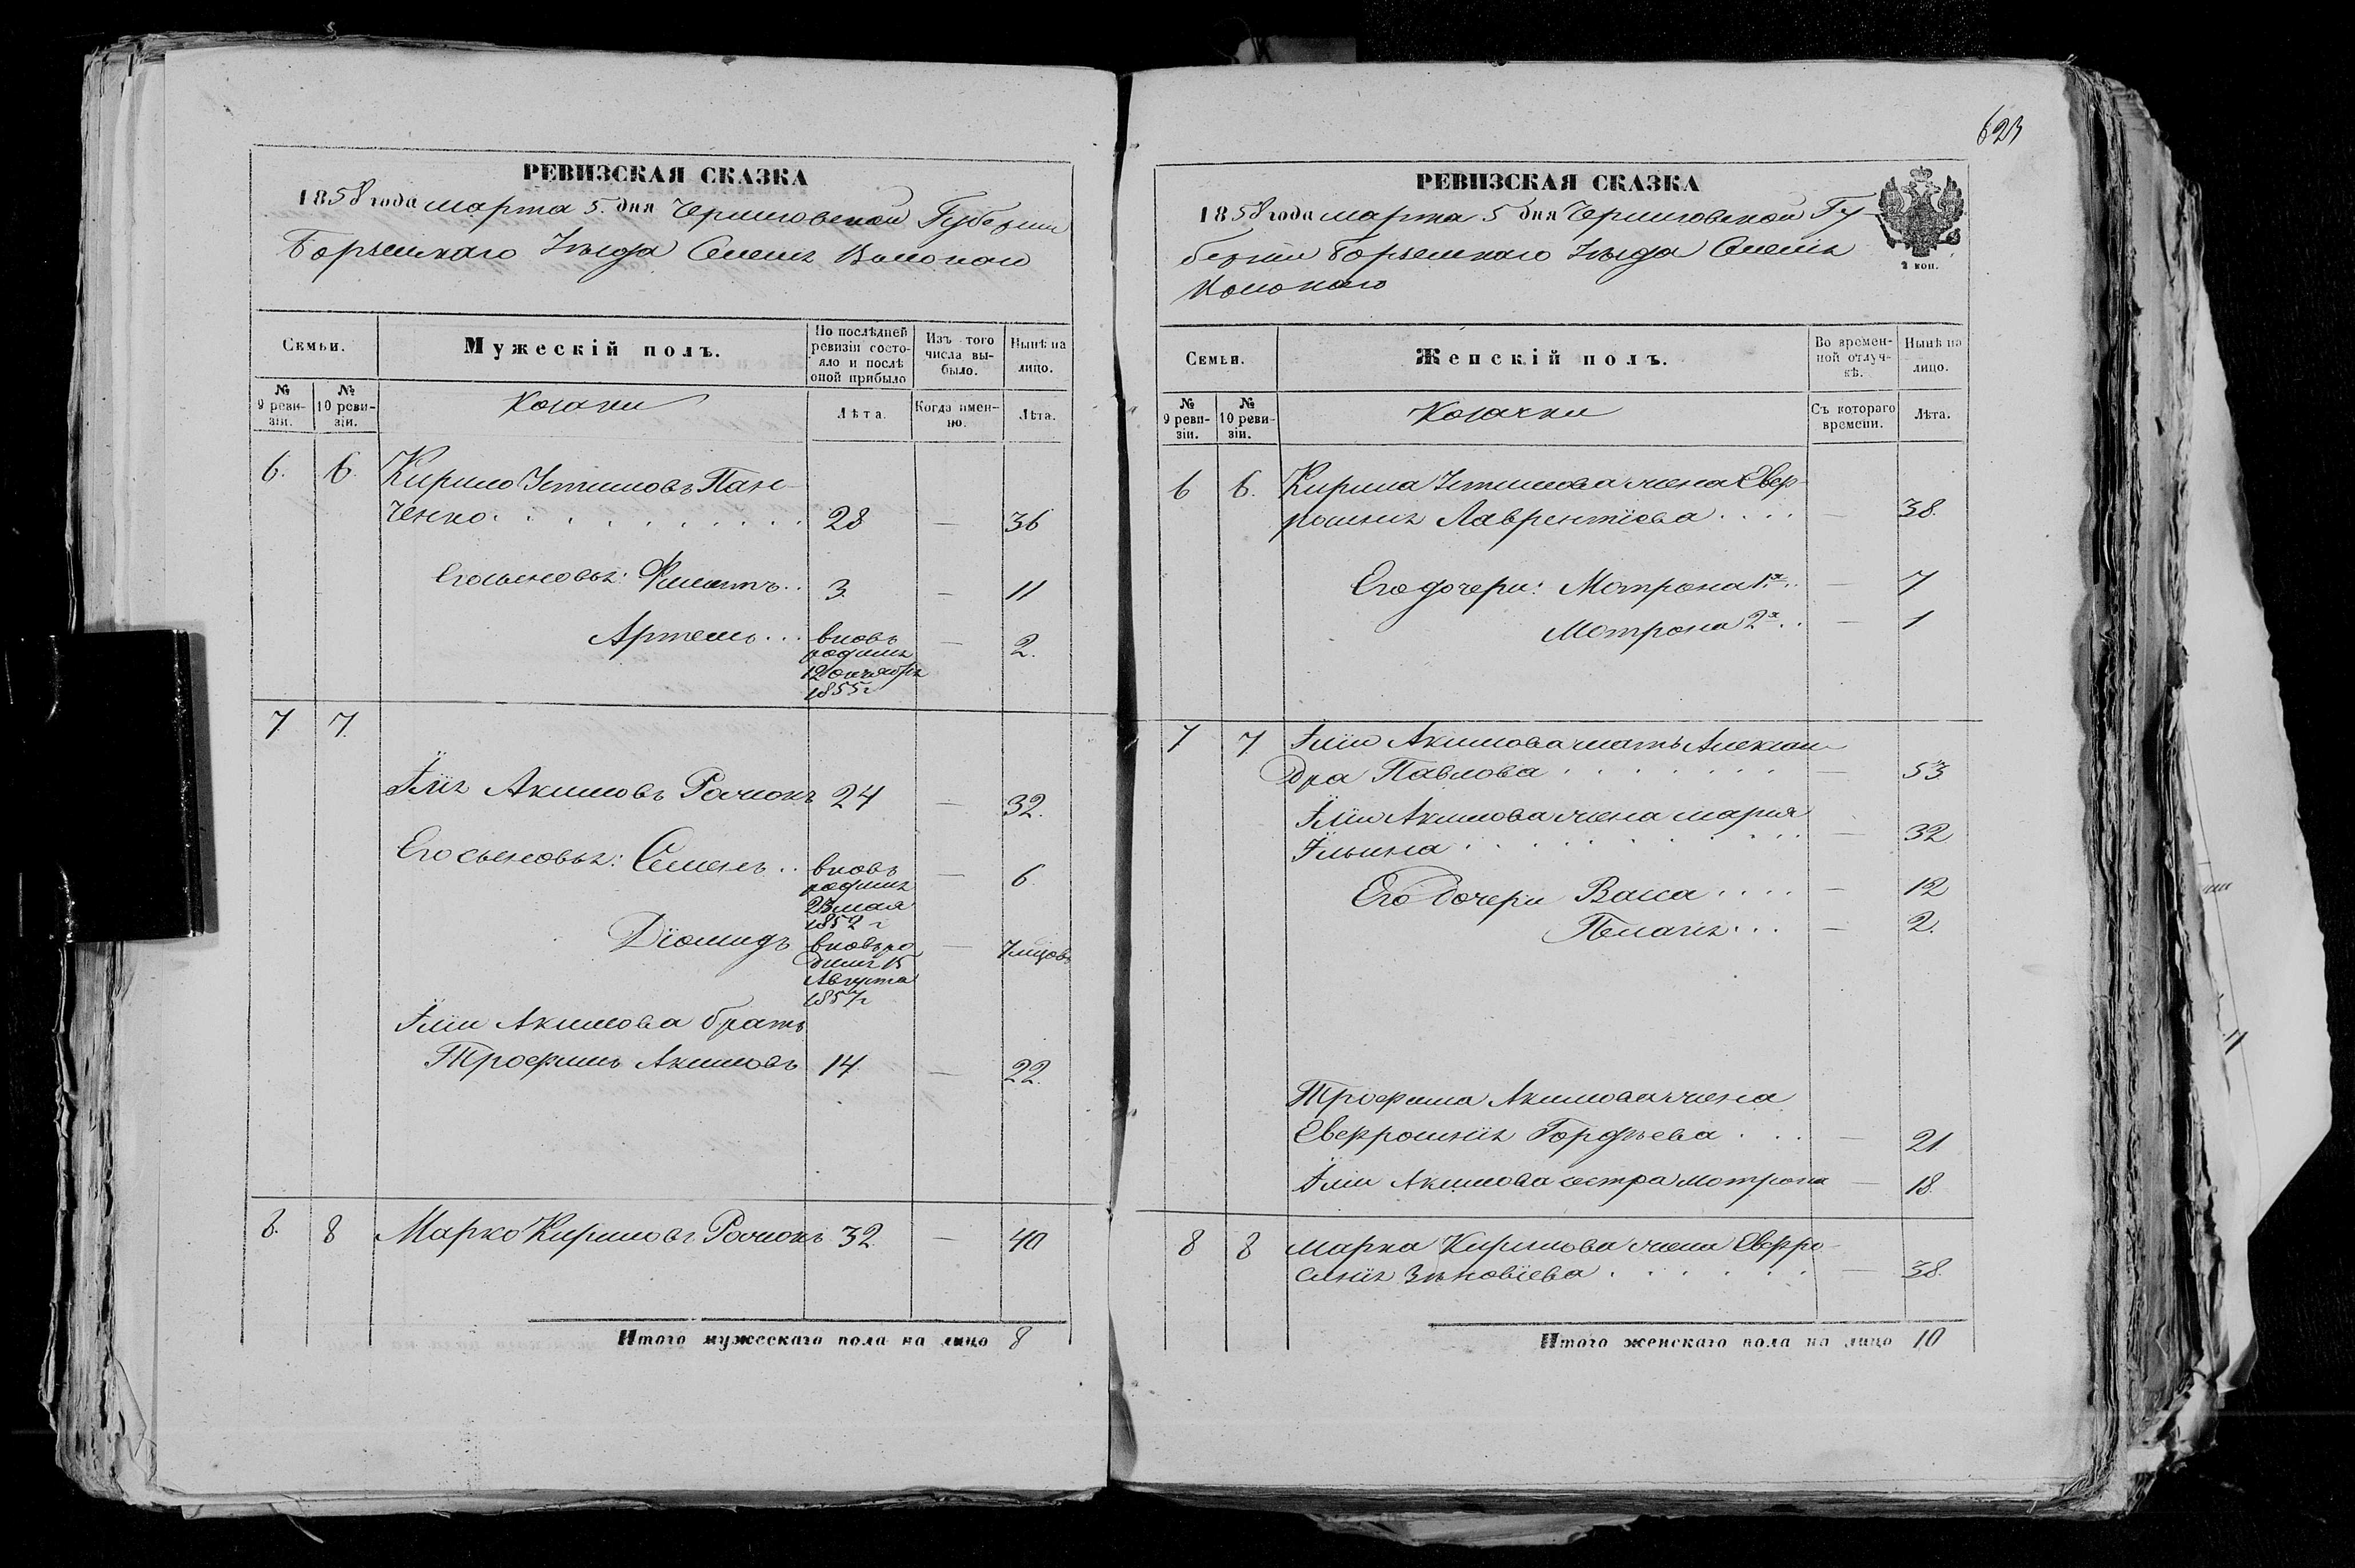 623
РЕВИЗСКАЯ СКАЗКА
1858 года марта 5. дня Черниговской Губерніи
Борзенскаго Уѣзда
Семьи.
Мужескій полъ.
По послѣдней ревизіи состояло и послѣ оной прибыло
Изъ того числа выбыло.
Нынѣ на лицо.
№ 9 ревизіи.
№ 10 ревизіи.
Козаки
Лѣта.
Когда именно.
Лѣта.
6. 6. Кирило Пан-
ченко 28 — 36
Его сыновья: Филатъ 3. — 11
Артемъ вновь — 2.
родился
12 октября
1855 г
7. 7.
Илія Акимовъ 24 — 32.
Его сыновья: Семенъ вновь — 6.
родился
23 мая
1852 г
Діомидъ вновь ро — 7 мцовъ
дился 15
Августа
1857 г
Иліи Акимова братъ
Трофимъ Акимовъ 14. — 22.
8. 8 Марко Кириловъ 32. — 40
Итого мужескаго пола на лицо 8
РЕВИЗСКАЯ СКАЗКА
1858 года марта 5 дня Черниговской Гу-
берніи Борзенскаго Уѣзда
2 коп.
Семьи.
Женскій полъ.
Во временной отлучкѣ.
Нынѣ на лицо.
№ 9 ревизіи.
№ 10 ревизіи.
Козачки
Съ котораго времени.
Лѣта.
6 6. Кирила жена Евф-
росинія Лаврентіева — 38.
Его дочери: Мотрона 1я — 7
Мотрона 2я — 1
7 7 Иліи Акимова мать Алексан-
дра Павлова — 53
Иліи Акимова жена Марія
Ильина — 32
Его дочери Васса — 12
Пелагія — 2.
Трофима Акимова жена
Евфросинія Гордѣева — 21
Иліи Акимова сестра Мотрона — 18.
8 8 Марка Кирилова жена Евфро-
синія Зѣновіева — 38.
Итого женскаго пола на лицо 10